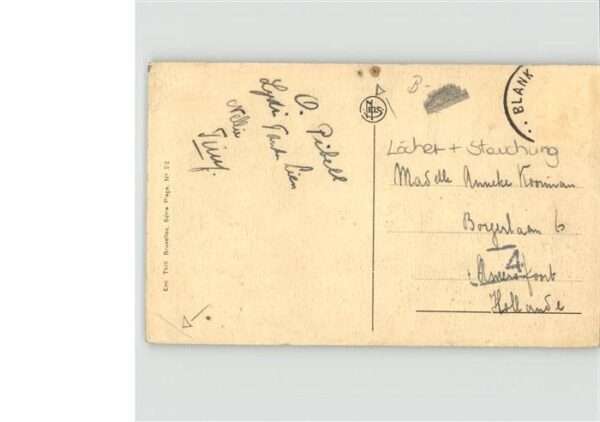 O. Pibell
Lydi Tante Lien
Nellie
Timy.
Ern. Thill, Bruxelles, Série Plage, Nº 22
B-
BLANK
Löcher + Stauchung
Madelle Anneke Kooiman
Borgerlaan 6
4
Amersfoort
Hollande